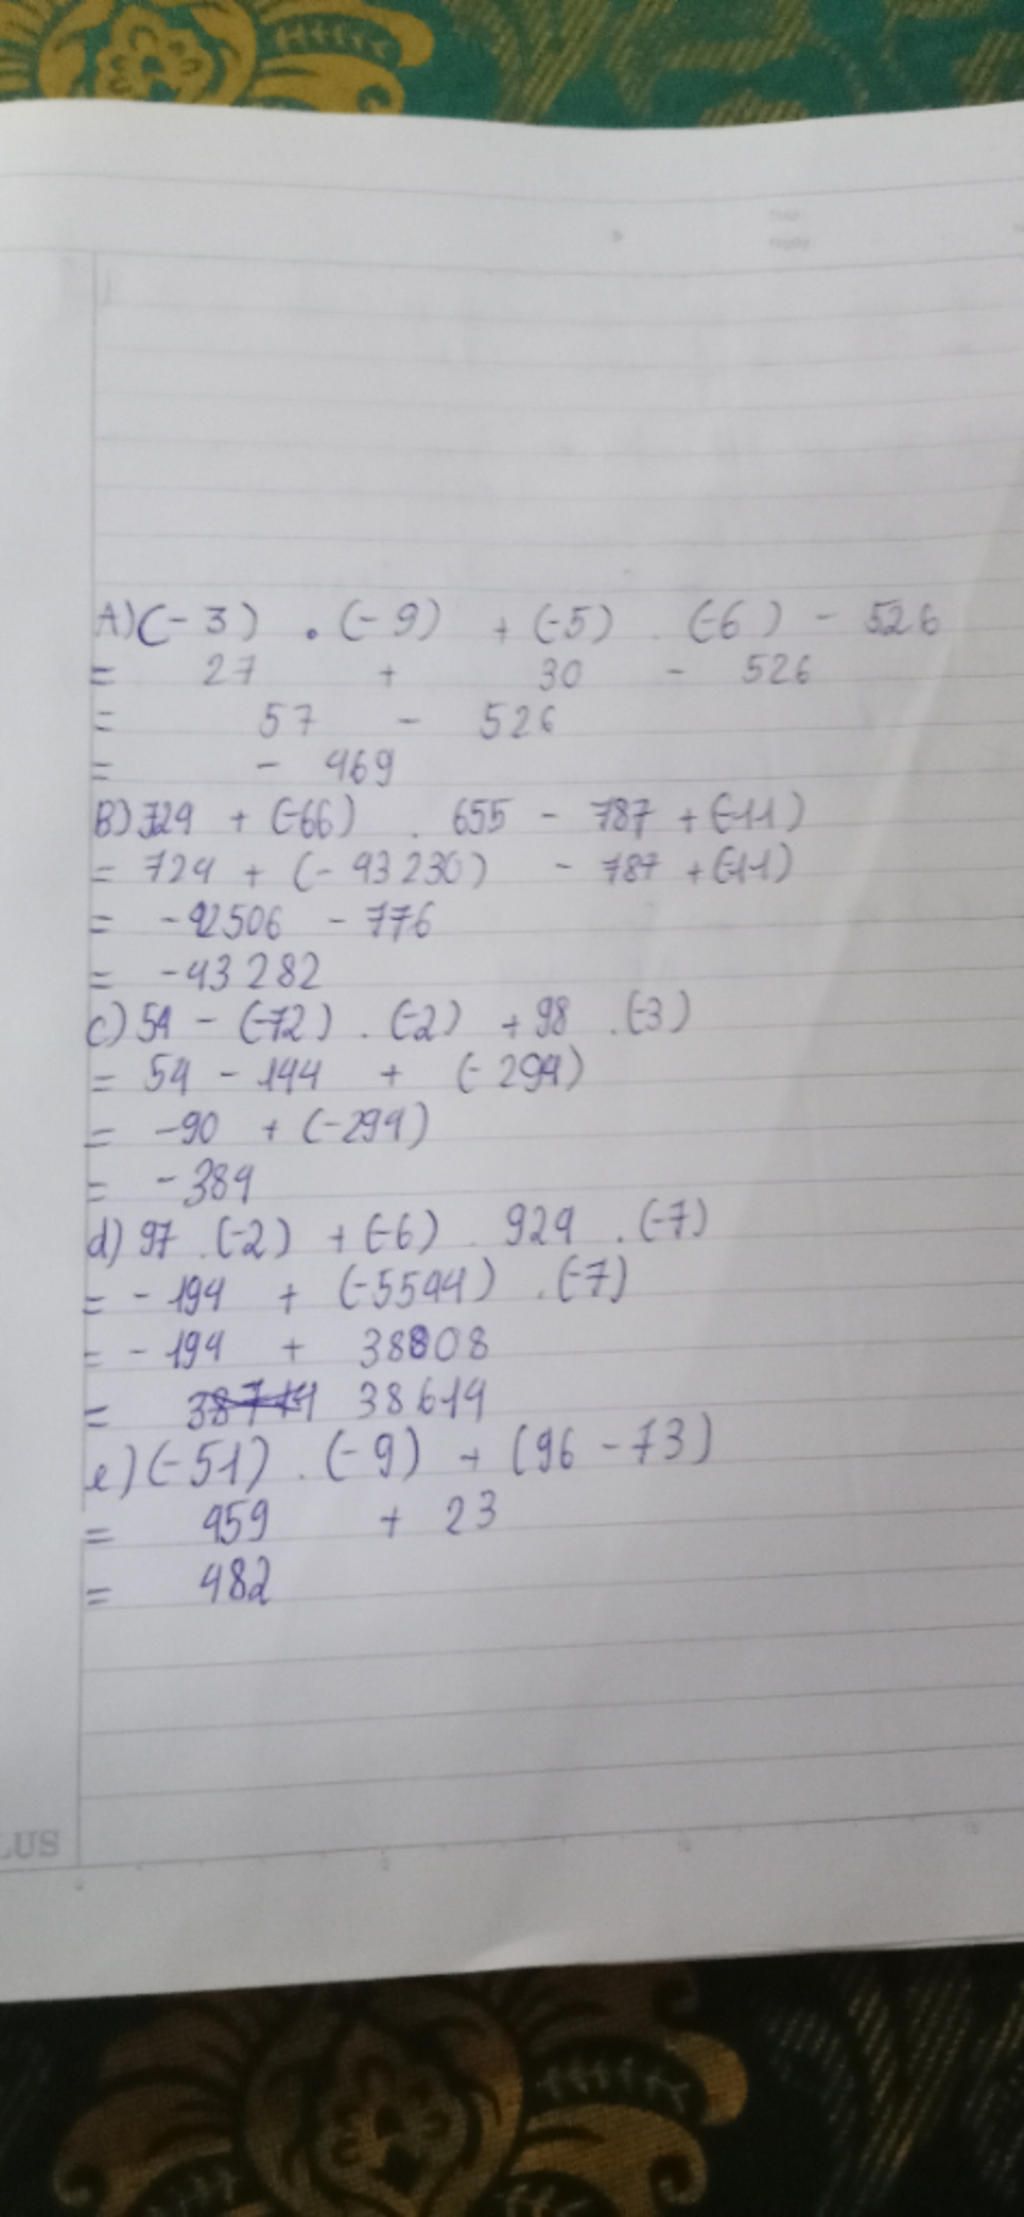 A) (-3) . (-9) + (-5) . (-6) - 526
= 27 + 30 - 526
= 57 - 526
= - 469
B) 724 + (-66) . 655 - 787 + (-11)
= 724 + (-43230) - 787 + (-11)
= -42506 - 776
= -43282
c) 54 - (-72) . (-2) + 98 . (-3)
= 54 - 144 + (-294)
= -90 + (-294)
= -384
d) 97 . (-2) + (-6) . 924 . (-7)
= - 194 + (-5544) . (-7)
= - 194 + 38808
= 38614
e) (-51) . (-9) + (96 - 73)
= 459 + 23
= 482
LUS